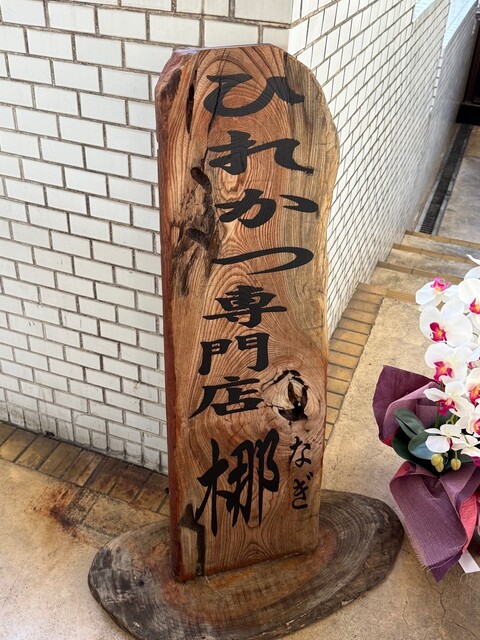 ひれかつ専門店
梛
なぎ